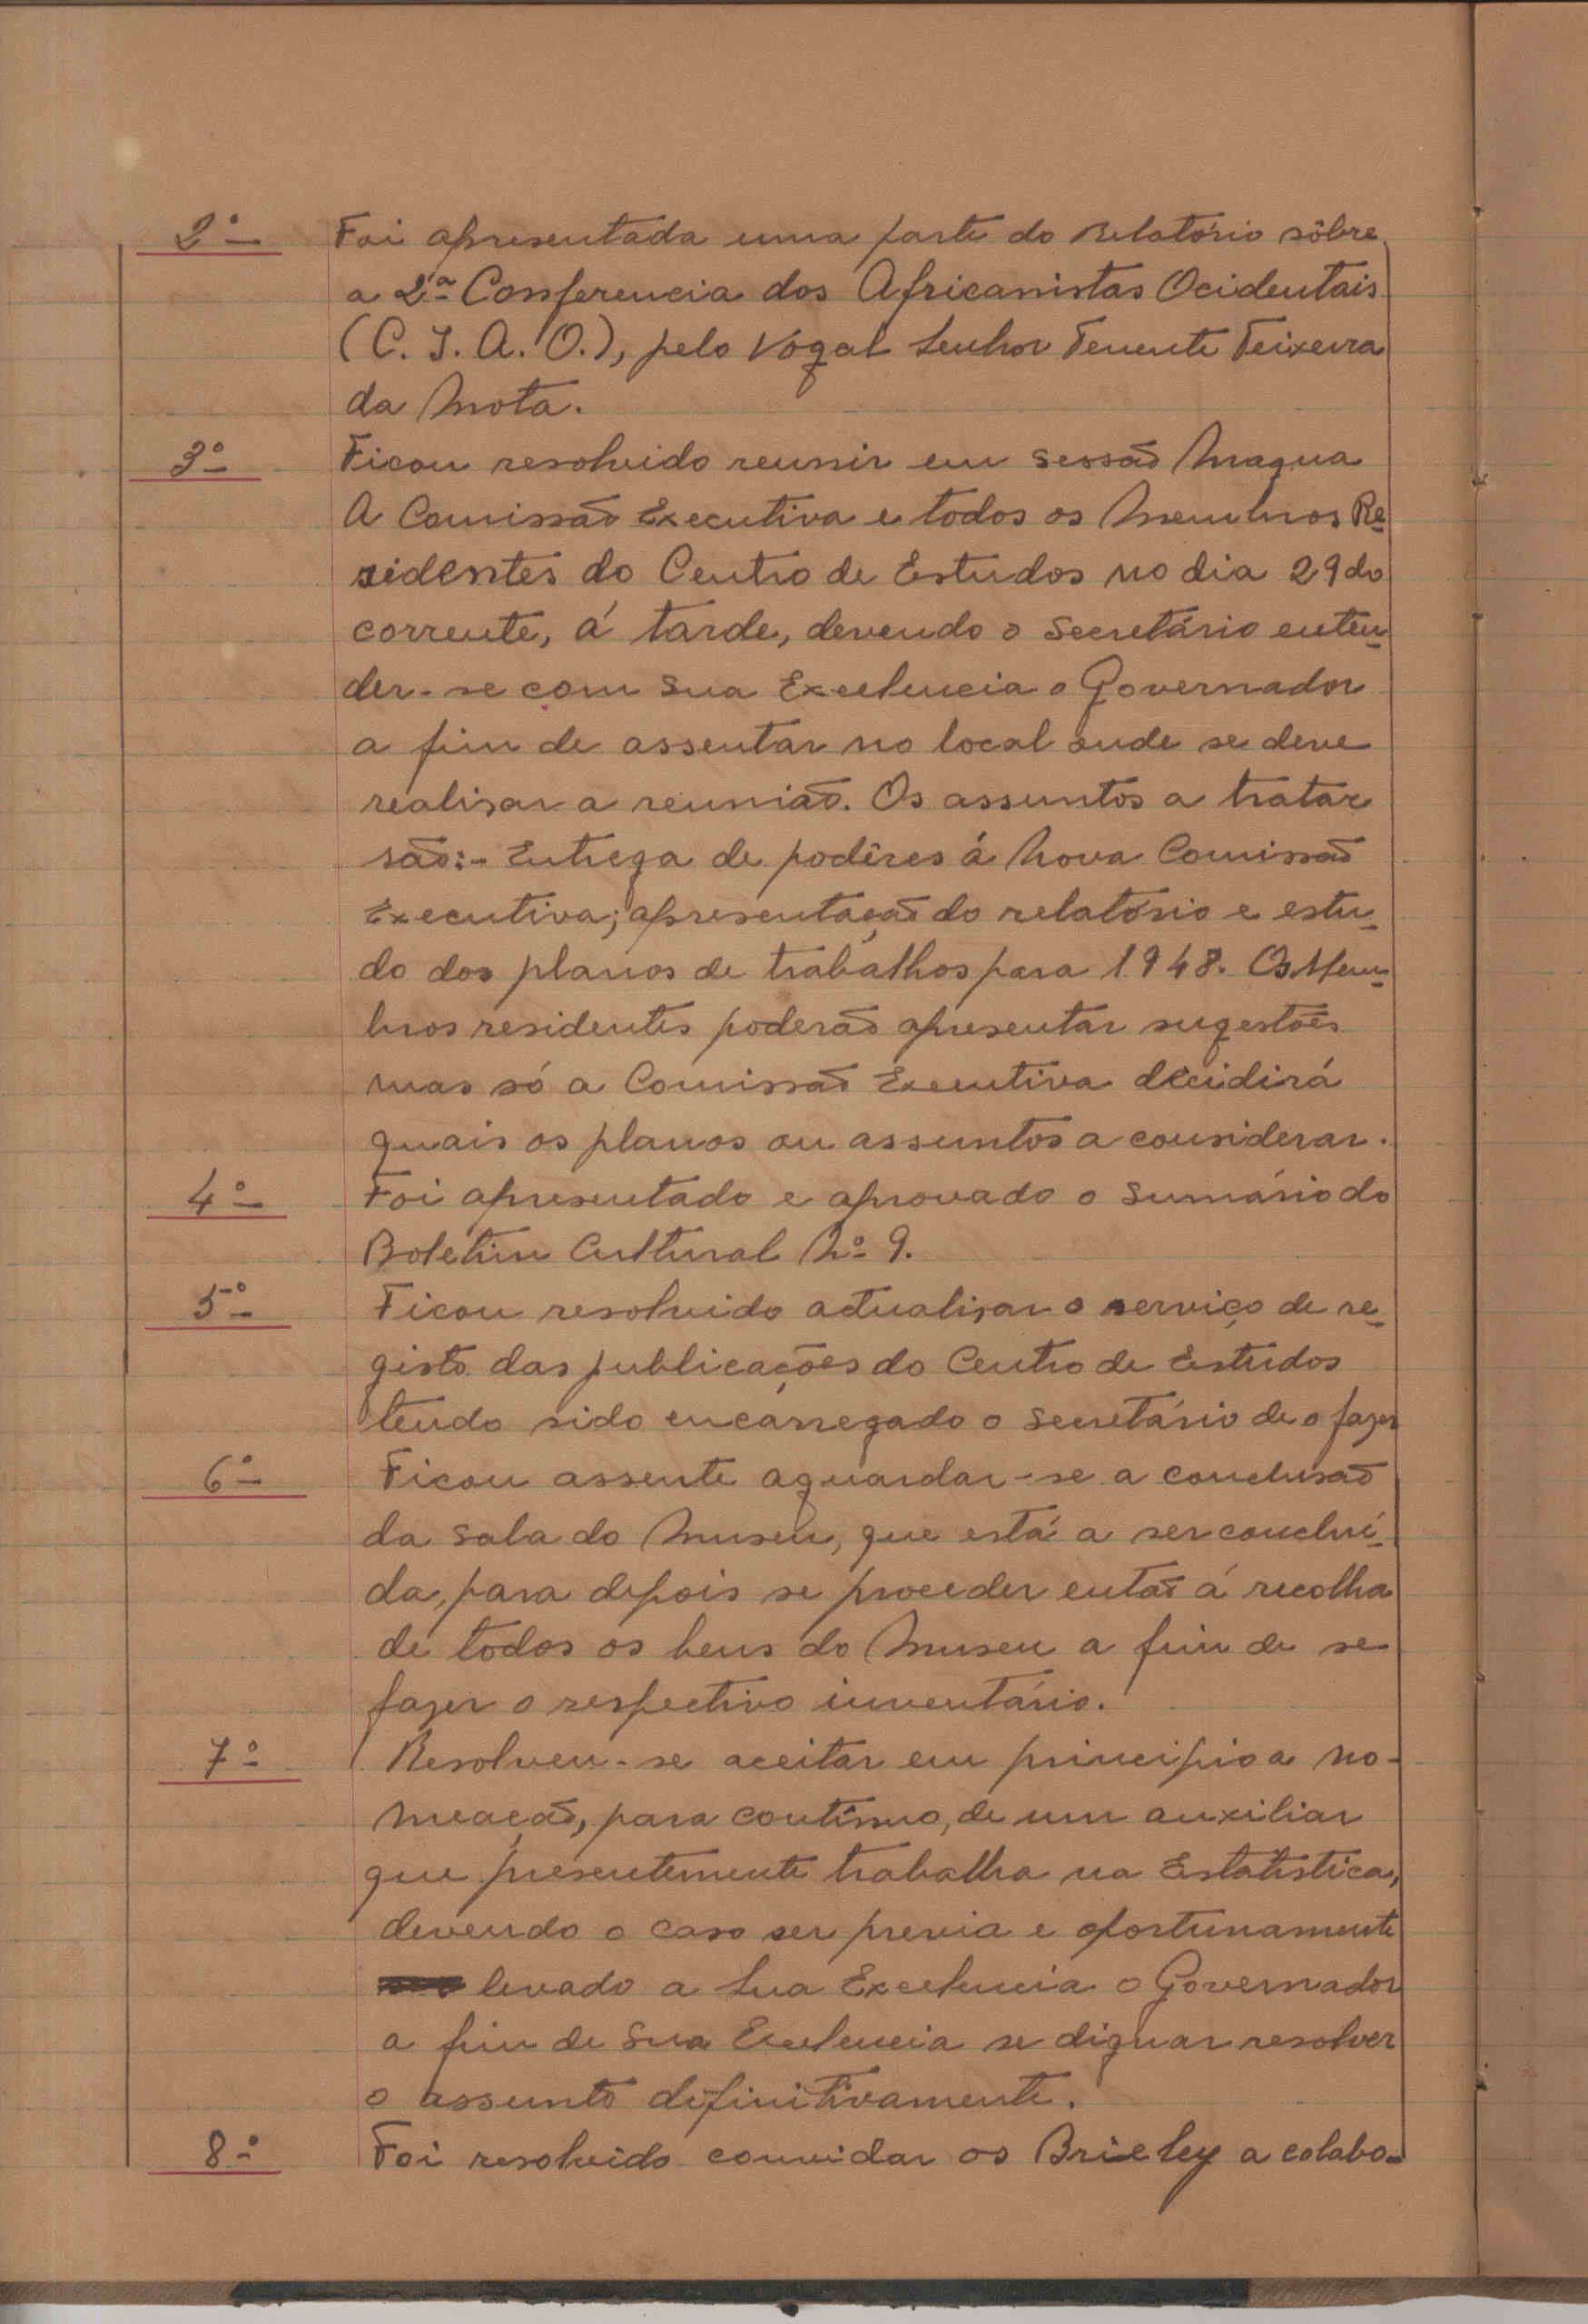 2º- Foi apresentada uma parte do Relatório sôbre
a 2ª Conferencia dos Africanistas Ocidentais
(C. I. A. O.), pelo Vogal Senhor Tenente Teixeira
da Mota.
3º- Ficou resolvido reunir em sessão Magna
A Comissão Executiva e todos os Membros Re-
sidentes do Centro de Estudos no dia 29 do
corrente, á tarde, devendo o Secretário enten-
der-se com Sua Excelencia o Governador
a fim de assentar no local onde se deve
realizar a reunião. Os assuntos a tratar
são:- Entrega de podêres á Nova Comissão
Executiva; apresentação do relatório e estu-
do dos planos de trabalhos para 1948. Os Mem-
bros residentes poderão apresentar sugestões
mas só a Comissão Executiva decidirá
quais os planos ou assuntos a considerar.
4º- Foi apresentado e aprovado o Sumário do
Boletim Cultural Nº 9.
5º- Ficou resolvido actualizar o serviço de re-
gisto das publicações do Centro de Estudos
tendo sido encarregado o Secretário de o fazer
6º- Ficou assente aguardar-se a conclusão
da Sala do Museu, que está a ser concluí-
da, para depois se proceder então á recolha
de todos os bens do Museu a fim de se
fazer o respectivo inventário.
7º- Resolveu-se aceitar em principio a no-
meação, para contínuo, de um auxiliar
que presentemente trabalha na Estatística,
devendo o caso ser previa e oportunamente
levado a Sua Excelencia o Governador
a fim de Sua Excelencia se dignar resolver
o assunto definitivamente.
8º- Foi resolvido convidar os Brieley a colabo-